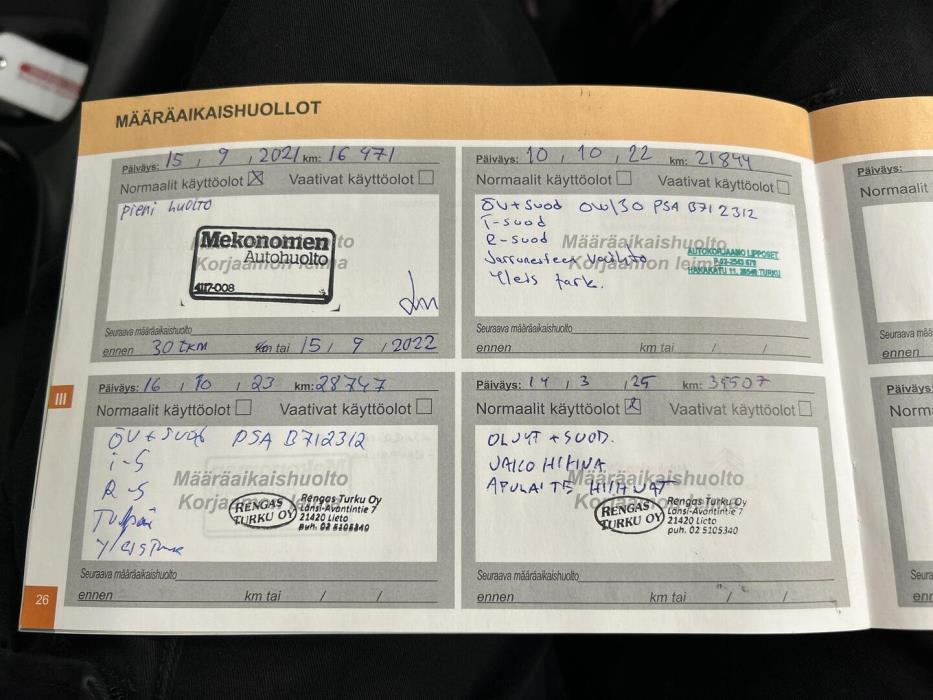 MÄÄRÄAIKAISHUOLLOT
Päiväys: 15 , 9 , 2021 km: 16 471
Normaalit käyttöolot ☒ Vaativat käyttöolot ☐
Pieni huolto
Määräaikaishuolto
Korjaamon leima
Mekonomen
Autohuolto
4117-008
Seuraava määräaikaishuolto
ennen 30 tkm km tai 15 / 9 / 2022
Päiväys: 10 , 10 , 22 km: 21844
Normaalit käyttöolot ☐ Vaativat käyttöolot ☐
ÖV+suod 0W/30 PSA B712312
I-suod
R-suod
Jarrunesteen vaihto
Yleis tark.
Määräaikaishuolto
Korjaamon leima
AUTOKORJAAMO LIPPOSET
HAKAKATU 11, TURKU
Seuraava määräaikaishuolto
ennen km tai / /
Päiväys: 16 , 10 , 23 km: 28747
Normaalit käyttöolot ☐ Vaativat käyttöolot ☐
ÖV+suod PSA B712312
i-S
R-S
Määräaikaishuolto
Korjaamon leima
RENGAS
TURKU OY
Rengas Turku Oy
Länsi-Avantintie 7
21420 Lieto
puh. 02 5105340
Seuraava määräaikaishuolto
ennen km tai / /
Päiväys: 14 , 3 , 25 km: 39507
Normaalit käyttöolot ☒ Vaativat käyttöolot ☐
ÖLJYT + SUOD.
JAKO HIHNA
APULAITE HIHNAT
Määräaikaishuolto
Korjaamon leima
RENGAS
TURKU OY
Rengas Turku Oy
Länsi-Avantintie 7
21420 Lieto
puh. 02 5105340
Seuraava määräaikaishuolto
ennen km tai / /
III
26
Päiväys:
Normaalit
Seuraava
ennen
Päiväys: